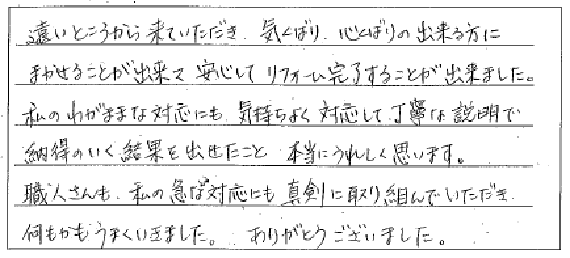 遠いところから来ていただき、気くばり、心くばりの出来る方に
まかせることが出来て安心してリフォーム完了することが出来ました。
私のわがままな対応にも、気持ちよく対応して丁寧な説明で
納得のいく結果を出せたこと、本当にうれしく思います。
職人さんも、私の急な対応にも真剣に取り組んでいただき、
何もかもうまくいきました。ありがとうございました。